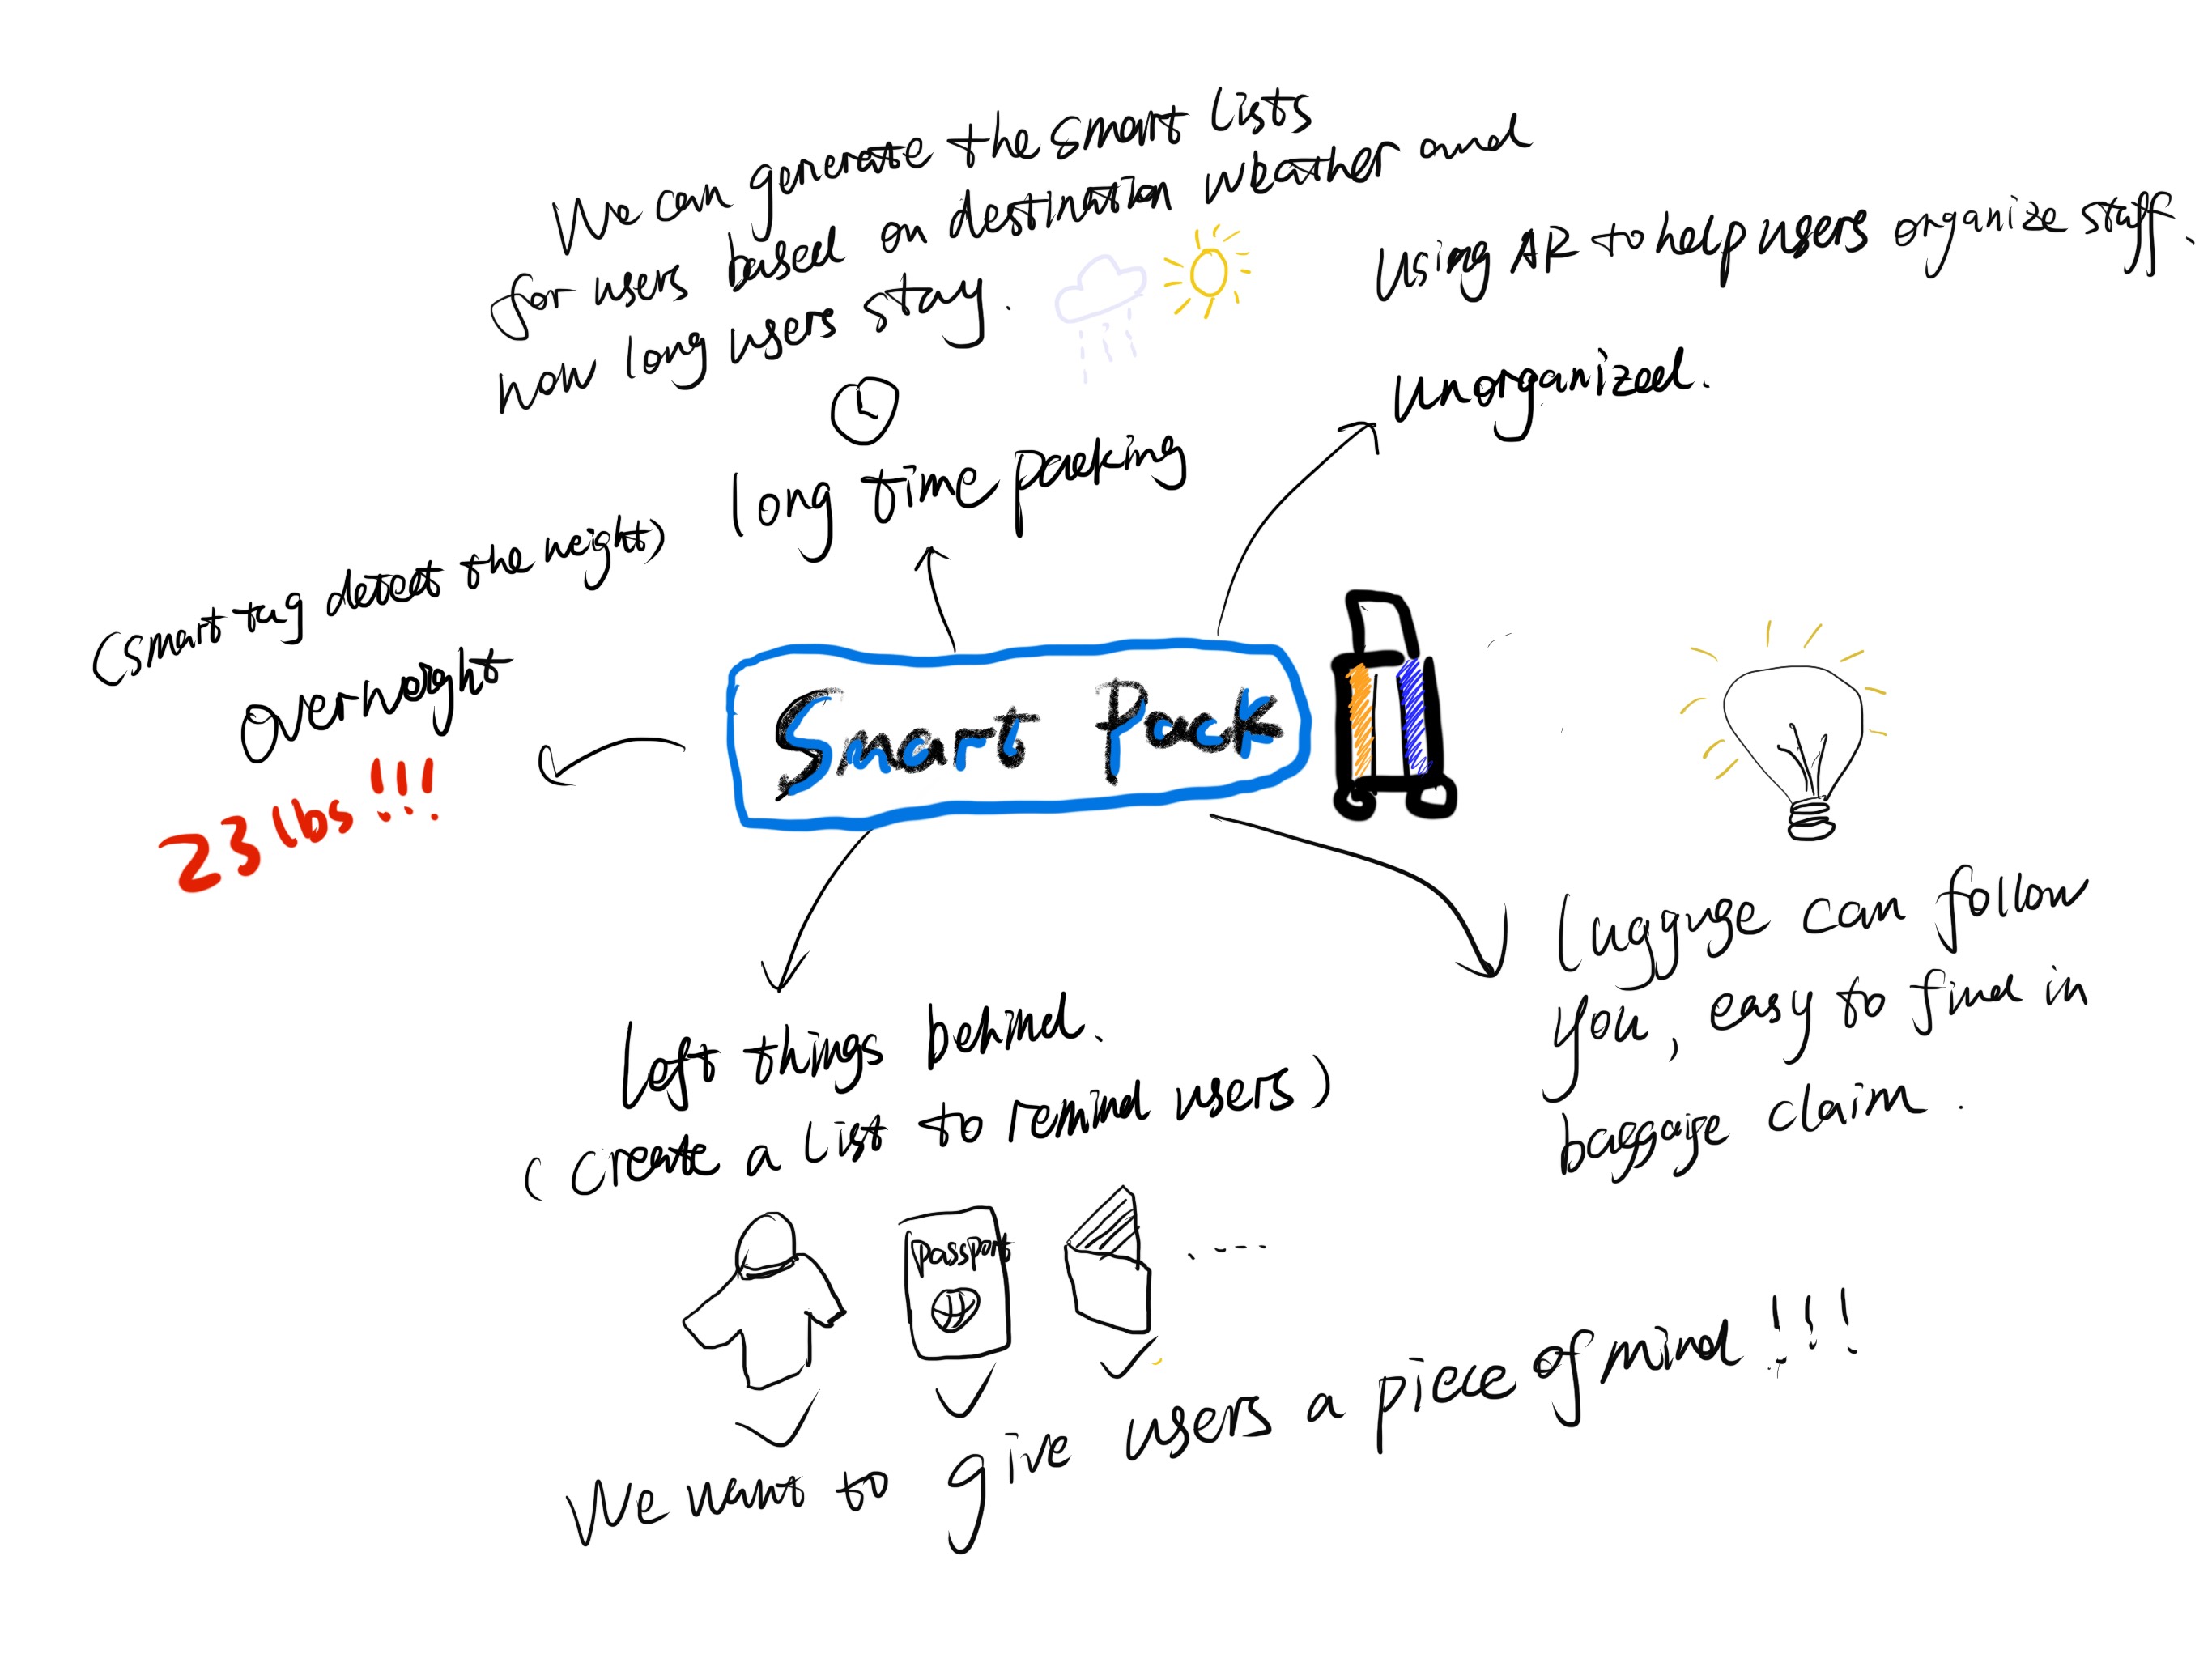 We can generate the smart lists
for users based on destination weather and
how long users stay.
Using AR to help users organize staff.
unorganized.
long time packing
(smart tag detect the weight)
overweight
23 lbs !!!
Smart Pack
Luggage can follow
you, easy to find in
baggage claim.
Left things behind.
(create a list to remind users)
passport
We want to give users a piece of mind !!!